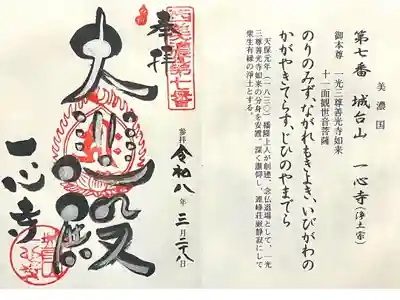 美濃国
第七番 城台山 一心寺(浄土宗)
御本尊 一光三尊善光寺如来
十一面観世音菩薩
のりのみず、ながれもきよき、いびがわの
かがやきてらす、じひのやまでら
天保元年(一八三〇)播隆上人が創建、念仏道場として、一光
三尊善光寺如来の分身を安置、深く讃仰し、連峰荘厳静寂にして
衆生有縁の浄土とする。
西美濃第七番
奉拝
大殿
一心寺
参拝 令和八年三月二八日